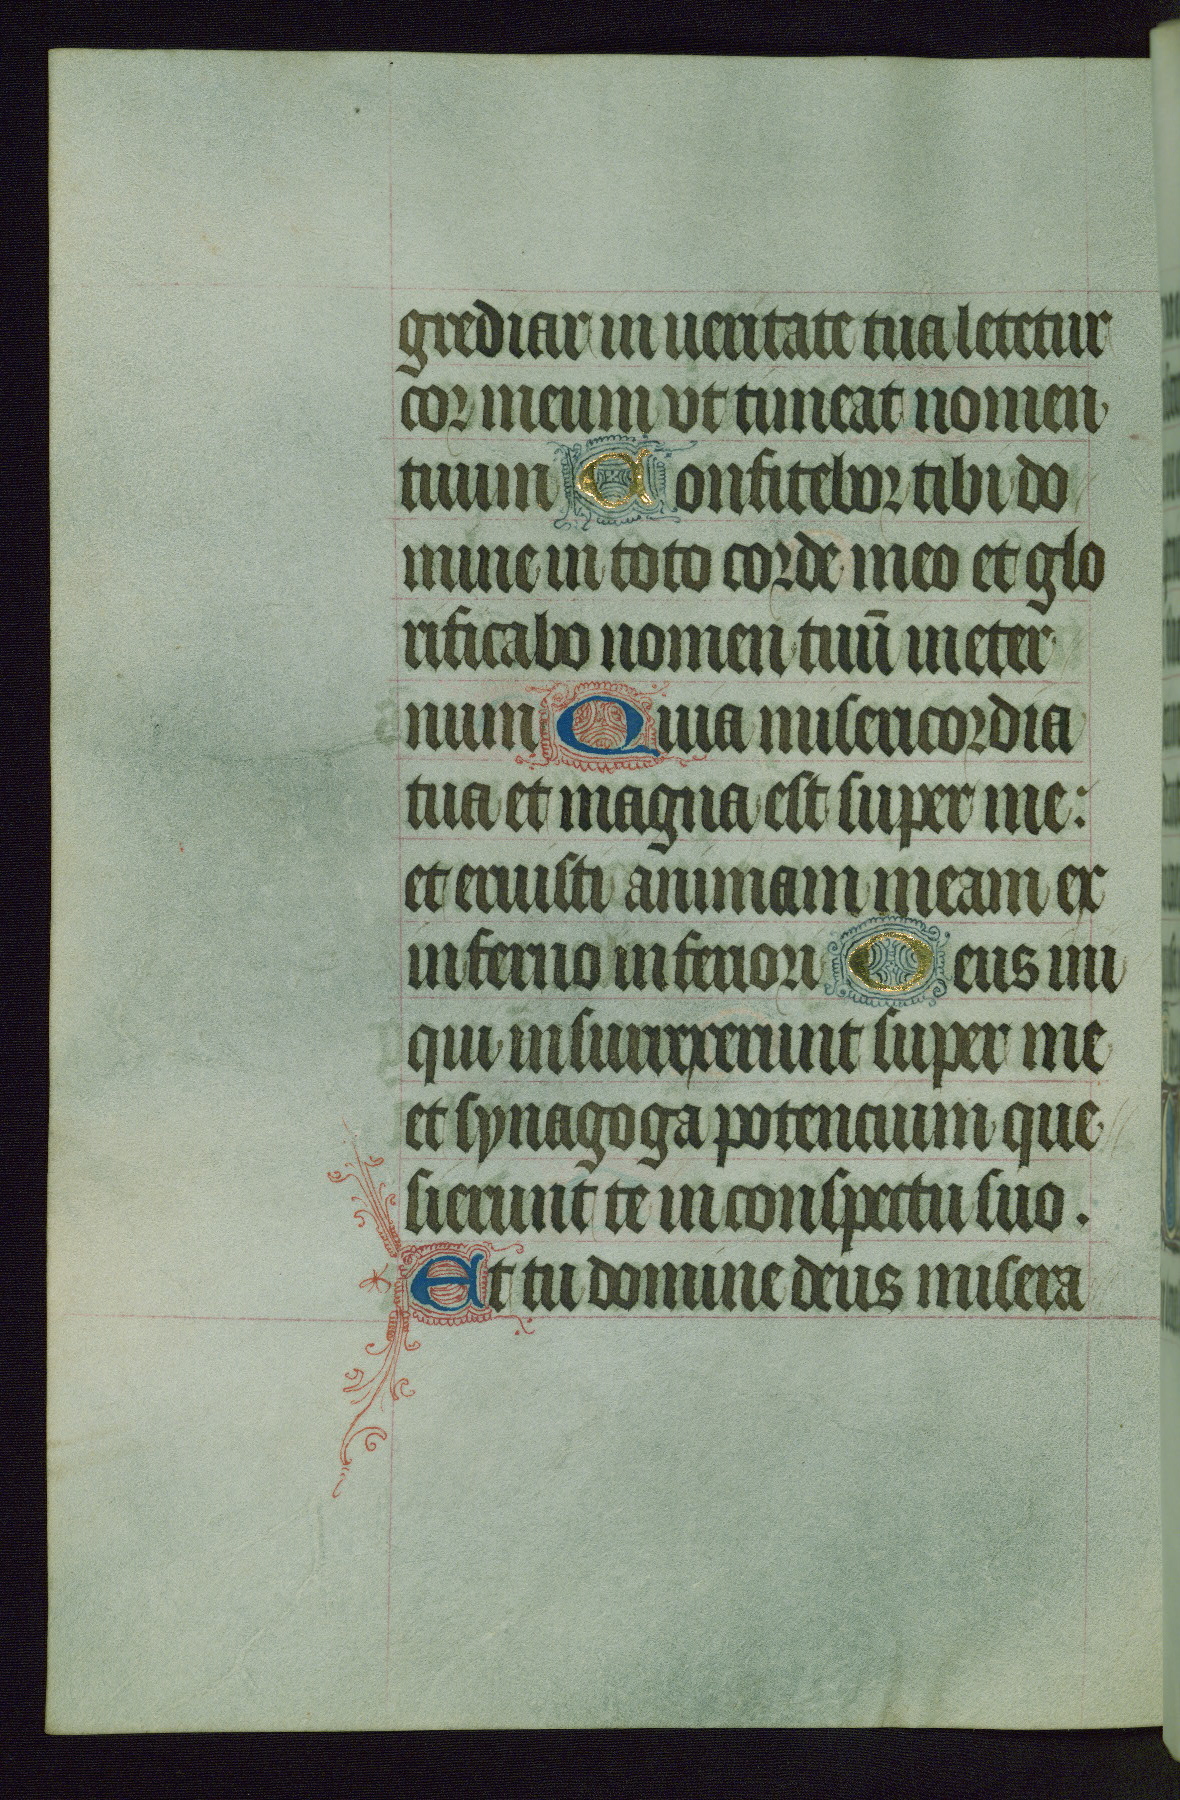 grediar in ueritate tua letetur
cor meum vt timeat nomen
tuum Confitebor tibi do
mine in toto corde meo et glo
rificabo nomen tuū in eter
num Quia misericordia
tua et magna est super me:
et eruisti animam meam ex
inferno inferiori Deus mi
qui insurrexerunt super me
et synagoga potencium que
sierunt te in conspectu suo.
Et tu domine deus misera